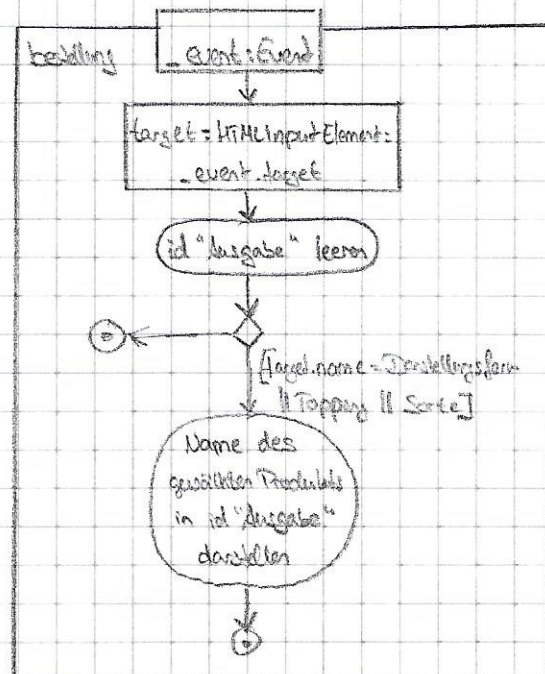 bestellung
_event: Event
target = HTMLInputElement =
_event.target
id "Ausgabe" leeren
[Target.name = Darstellungsform
|| Topping || Sorte]
Name des
gewählten Produkts
in id "Ausgabe"
darstellen